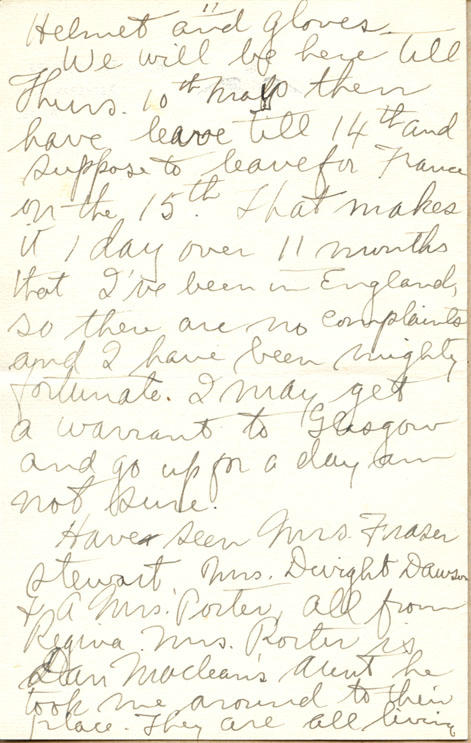 11
Helmet and gloves.
We will be here till
Thurs. 10th May then
have leave till 14th and
suppose to leave for France
on the 15th. That makes
it 1 day over 11 months
that I've been in England,
so there are no complaints
and I have been mighty
fortunate. I may get
a warrant to Glasgow
and go up for a day am
not sure.
Have seen Mrs. Fraser
Stewart, Mrs. Dwight Dawson
& A Mrs. Porter, all from
Regina. Mrs. Porter is
Dan Maclean's Aunt he
took me around to their
place. They are all living